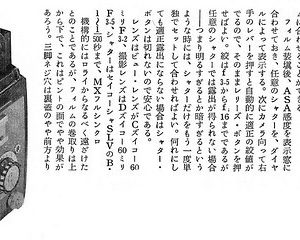 フィルム装填後、ASA感度を表示窓に
合わせておき、任意のシャッターを、ダイヤ
ルによって表示する。次にカメラ向って右
手のレバーを押すと自動的に適正の絞値が
るので、そのままレリーズ・ボタンを押
せばよい。絞はから16まであるが、
任意のシャッターで露出が得られない場合
――つまり明るすぎるとか暗すぎるという
ような時には、シャッターだけをもう一度単
独でセットして合わせればよい。何れにし
ても適正露出にならない場合はシャッター・
ボタンは切れないので安心である。
レンズはビュー・レンズがCズイコー60ミ
リF3.2、撮影レンズはDズイコー60ミリ
F3.5、シャッターはセイコーシャSLVのB・
1〜1/500秒まで、MXフルシンクロ
機構的にローライからなるべく遠ざけた
とのことであるが、フィルムの巻取りは上
から下で、これはピントの面でやや効果が
あろう。三脚ネジ穴は裏蓋のやや前方より